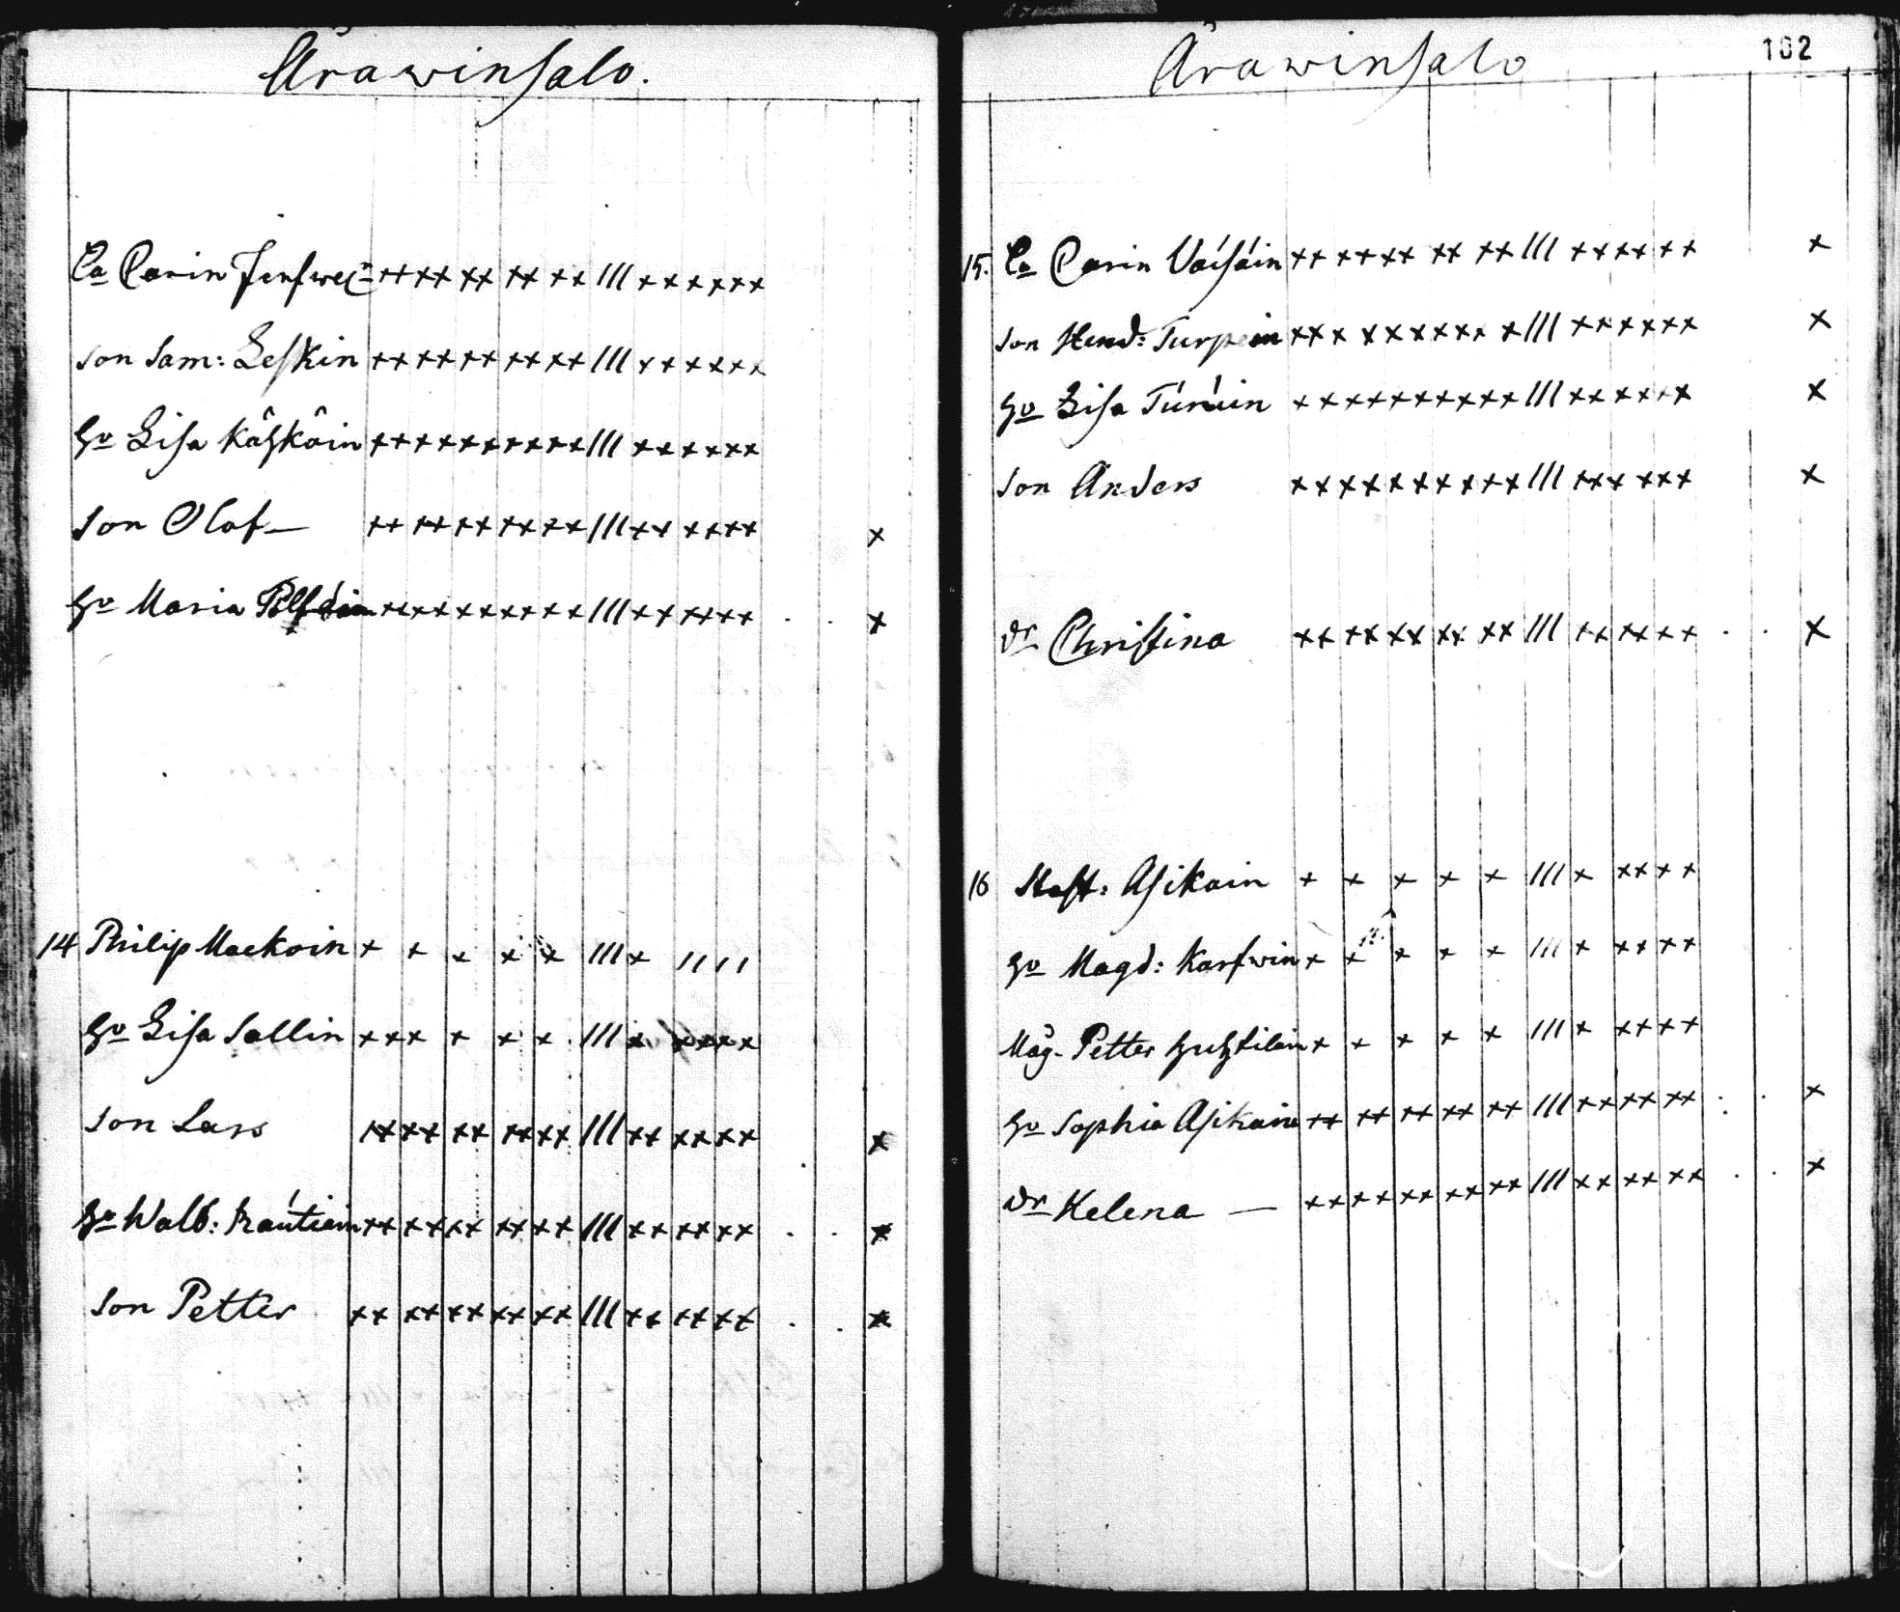 Arawinsalo.
Ea Carin
son Sam: Leskin
hu Lisa Kähköin
son Olof
hu Maria
14 Philip Mackoin
hu Lisa Sallin
son Lars
hu Walb: Rautiain
son Petter
Arawinsalo
102
15. Ea Carin Väisäin
son Hend: Turpein
hu Lisa
son Anders
dr Christina
16 Staff: Asikain
hu Magd: Karfwin
Måg. Petter Huhtilain
hu Sophia Asikain
dr Helena